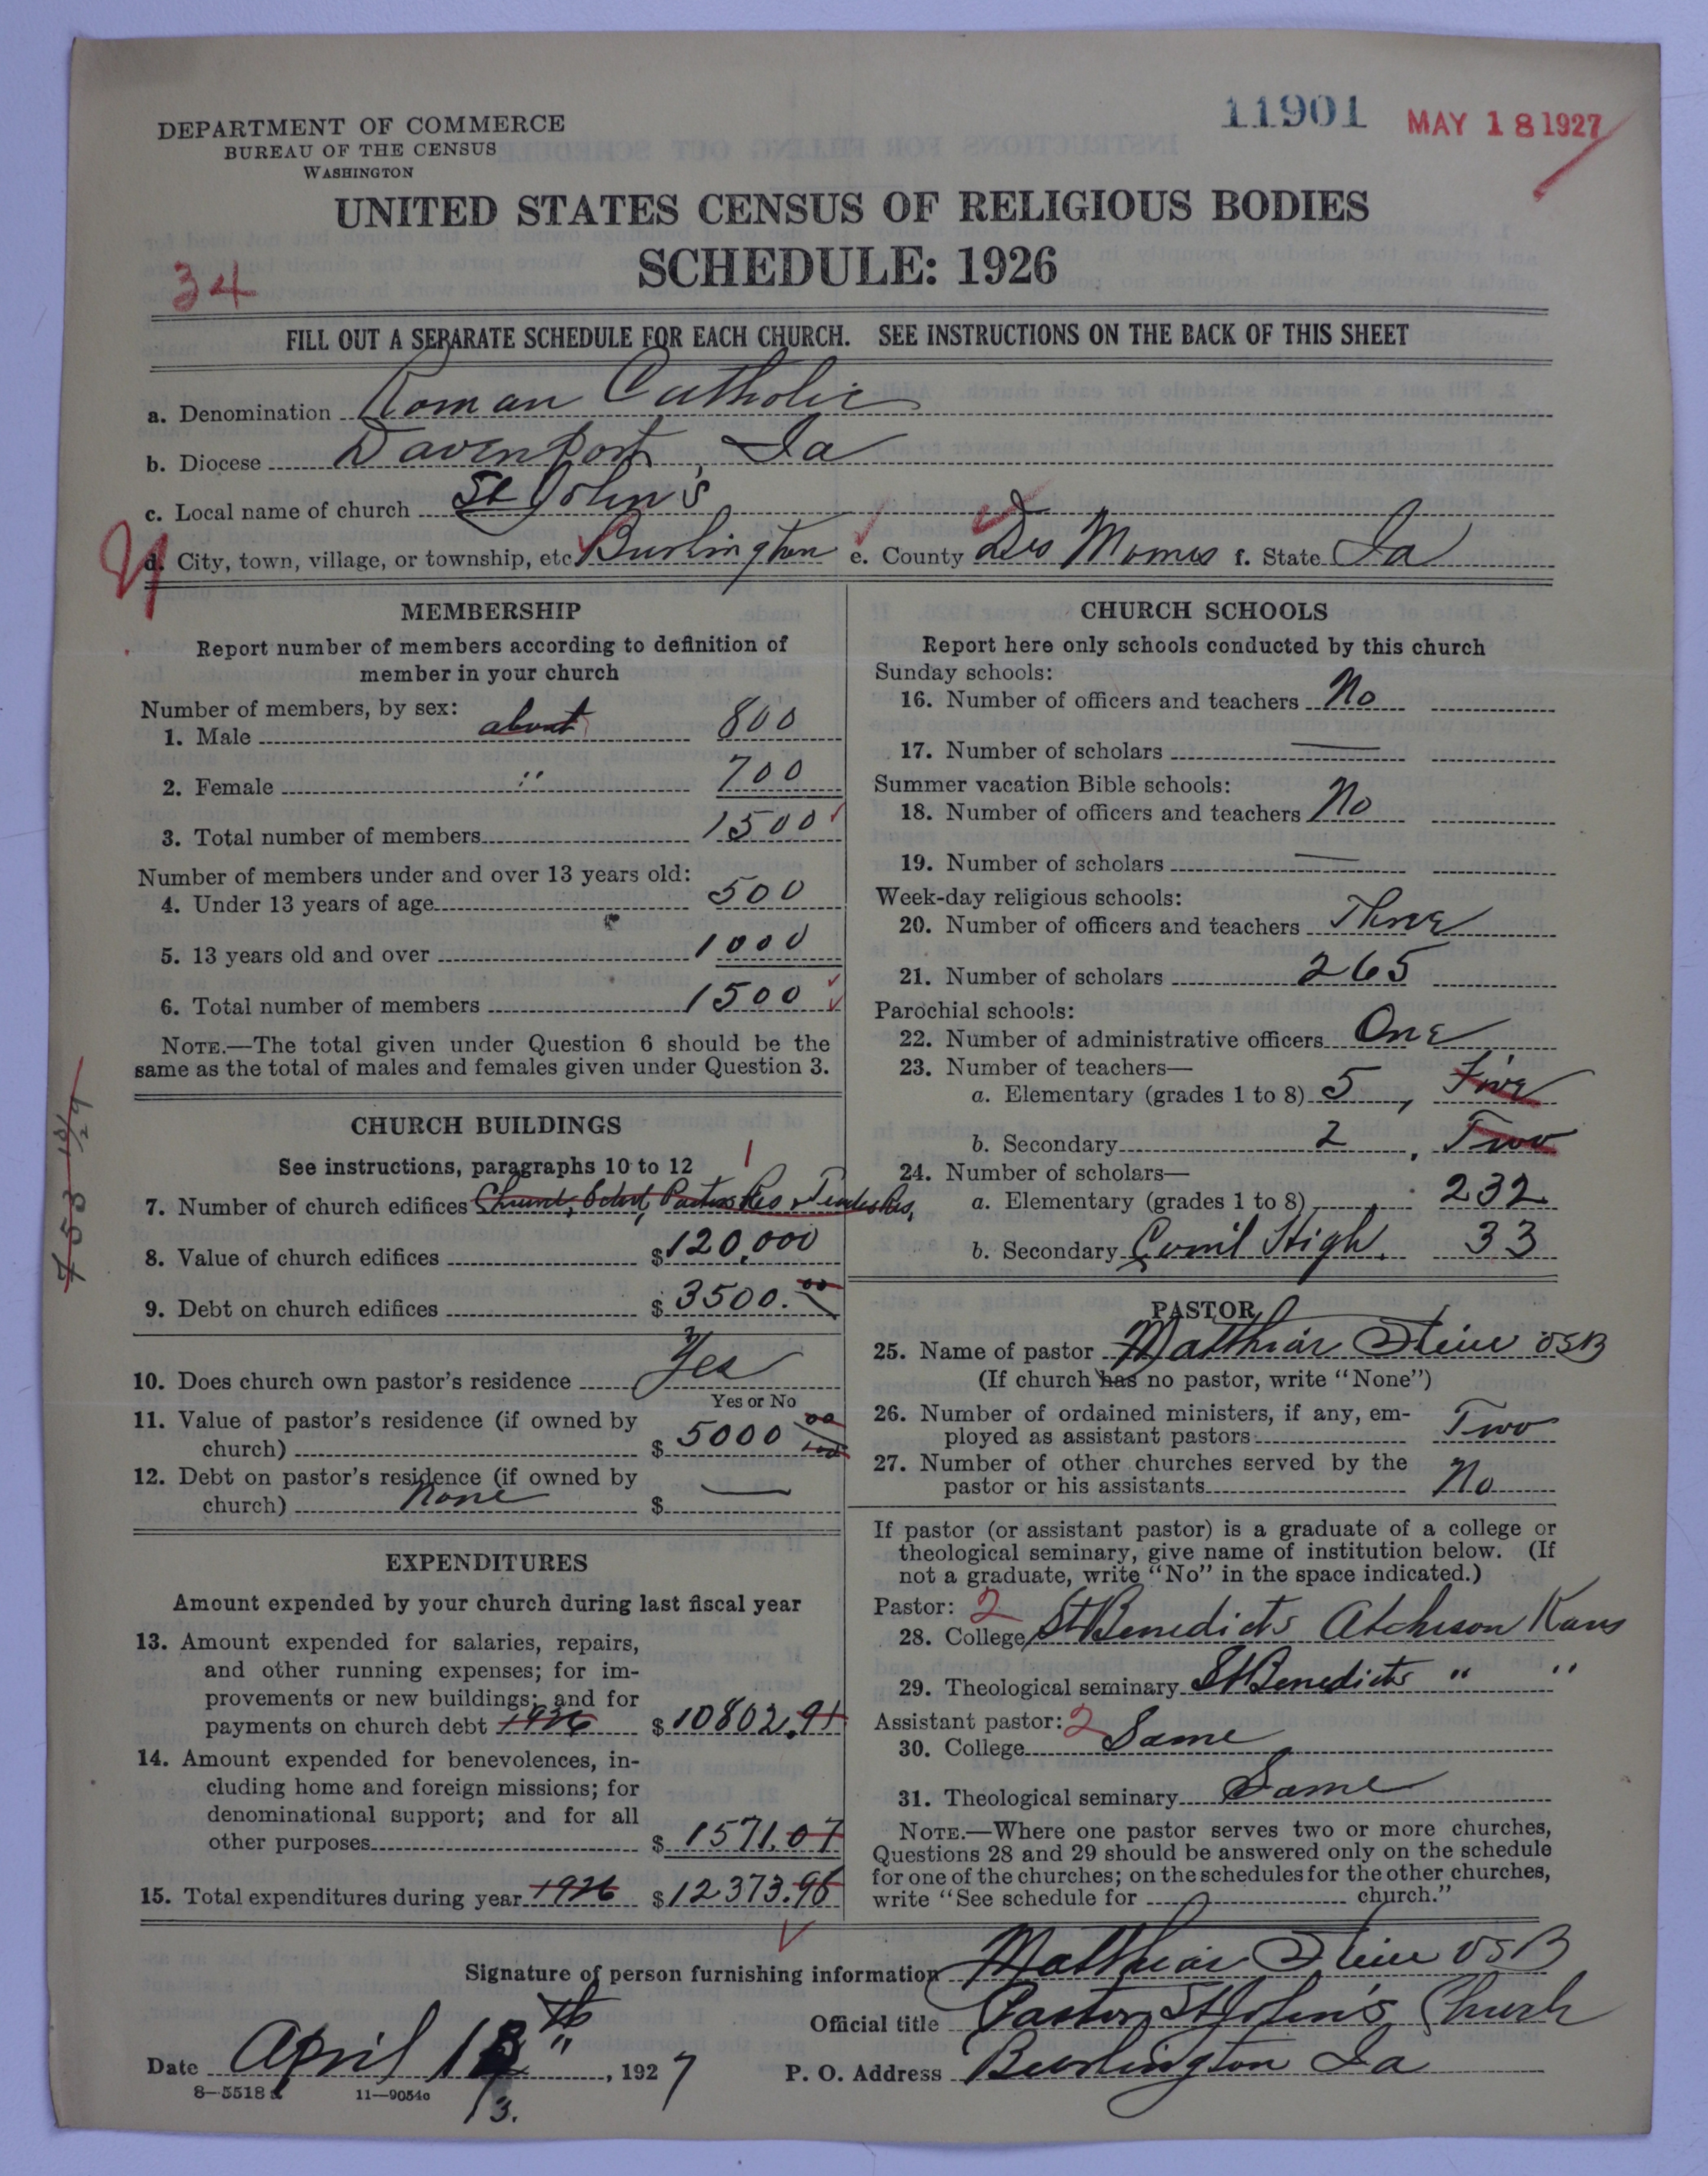 11901 MAY 18 1927
DEPARTMENT OF COMMERCE
BUREAU OF THE CENSUS
WASHINGTON
UNITED STATES CENSUS OF RELIGIOUS BODIES
SCHEDULE: 1926
34
FILL OUT A SEPARATE SCHEDULE FOR EACH CHURCH. SEE INSTRUCTIONS ON THE BACK OF THIS SHEET
a. Denomination Roman Catholic
b. Diocese Davenport, Ia
c. Local name of church St John's
d. City, town, village, or township, etc Burlington e. County Des Moines f. State Ia
MEMBERSHIP
Report number of members according to definition of
member in your church
Number of members, by sex:
1. Male about 800
2. Female " 700
3. Total number of members 1500
Number of members under and over 13 years old:
4. Under 13 years of age 500
5. 13 years old and over 1000
6. Total number of members 1500
NOTE.—The total given under Question 6 should be the
same as the total of males and females given under Question 3.
CHURCH BUILDINGS
See instructions, paragraphs 10 to 12 1
7. Number of church edifices Church, School, Pastors Res
8. Value of church edifices $120,000
9. Debt on church edifices $3500.00
10. Does church own pastor's residence Yes
Yes or No
11. Value of pastor's residence (if owned by
church) $5000 00/100
12. Debt on pastor's residence (if owned by
church) None $ —
EXPENDITURES
Amount expended by your church during last fiscal year
13. Amount expended for salaries, repairs,
and other running expenses; for im-
provements or new buildings; and for
payments on church debt 1926 $10802.91
14. Amount expended for benevolences, in-
cluding home and foreign missions; for
denominational support; and for all
other purposes $1571.07
15. Total expenditures during year 1926 $12373.98
CHURCH SCHOOLS
Report here only schools conducted by this church
Sunday schools:
16. Number of officers and teachers No
17. Number of scholars —
Summer vacation Bible schools:
18. Number of officers and teachers No
19. Number of scholars —
Week-day religious schools:
20. Number of officers and teachers Three
21. Number of scholars 265
Parochial schools:
22. Number of administrative officers One
23. Number of teachers—
a. Elementary (grades 1 to 8) 5, Five
b. Secondary 2, Two
24. Number of scholars—
a. Elementary (grades 1 to 8) 232
b. Secondary High. 33
PASTOR
25. Name of pastor Matthias Stein OSB
(If church has no pastor, write "None")
26. Number of ordained ministers, if any, em-
ployed as assistant pastors Two
27. Number of other churches served by the
pastor or his assistants No
If pastor (or assistant pastor) is a graduate of a college or
theological seminary, give name of institution below. (If
not a graduate, write "No" in the space indicated.)
Pastor: 2
28. College St Benedicts Atchison Kans
29. Theological seminary St Benedicts " "
Assistant pastor: 2
30. College Same
31. Theological seminary Same
NOTE.—Where one pastor serves two or more churches,
Questions 28 and 29 should be answered only on the schedule
for one of the churches; on the schedules for the other churches,
write "See schedule for church."
Signature of person furnishing information Matthias Stein OSB
Official title Pastor St John's Church
Date April 13th, 1927 P. O. Address Burlington Ia
8—5518 a 11—9054a
13.